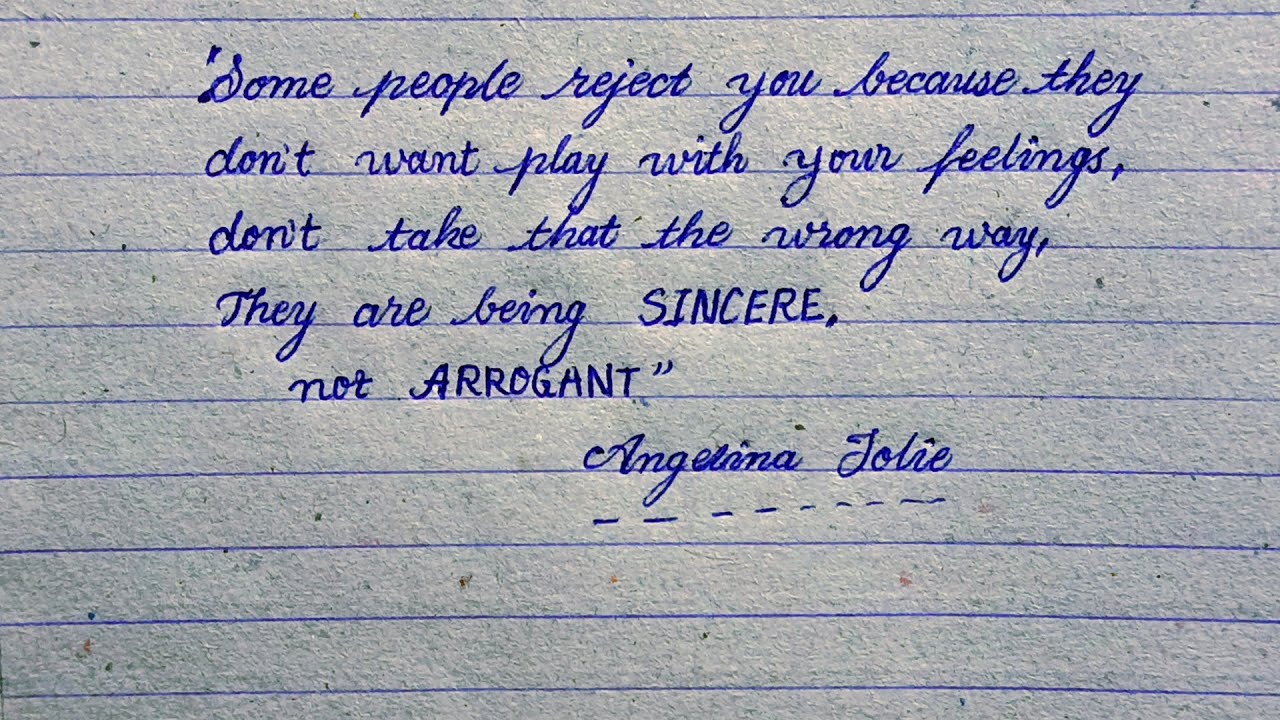 "Some people reject you because they
don't want play with your feelings,
don't take that the wrong way,
They are being SINCERE,
not ARROGANT"
Angelina Jolie